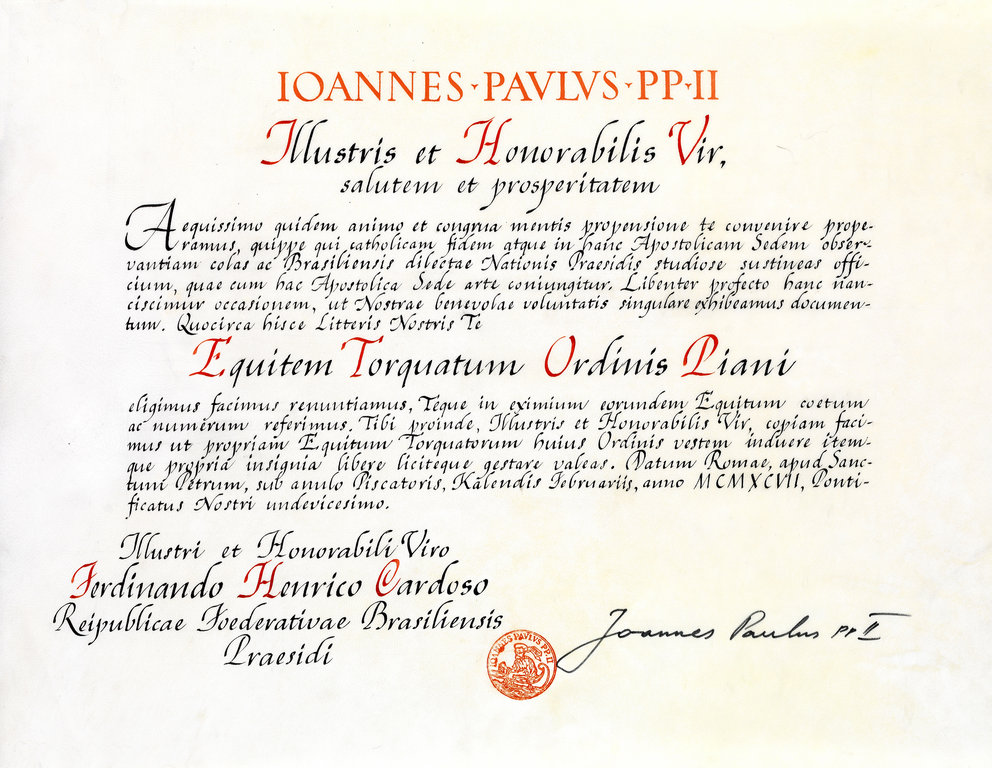 IOANNES · PAVLVS · PP · II
Illustris et Honorabilis Vir,
salutem et prosperitatem
Aequissimo quidem animo et congrua mentis propensione te convenire prope-
ramus, quippe qui catholicam fidem atque in hanc Apostolicam Sedem obser-
vantiam colas ac Brasiliensis dilectae Nationis Praesidis studiose sustineas offi-
cium, quae cum hac Apostolica Sede arte coniungitur. Libenter profecto hanc nan-
ciscimur occasionem, ut Nostrae benevolae voluntatis singulare exhibeamus documen-
tum. Quocirca hisce Litteris Nostris Te
Equitem Torquatum Ordinis Piani
eligimus facimus renuntiamus, Teque in eximium eorundem Equitum coetum
ac numerum referimus. Tibi proinde, Illustris et Honorabilis Vir, copiam faci-
mus ut propriam Equitum Torquatorum huius Ordinis vestem induere item-
que propria insignia libere liciteque gestare valeas. Datum Romae, apud Sanc-
tum Petrum, sub anulo Piscatoris, Kalendis Februariis, anno MCMXCVII, Ponti-
ficatus Nostri undevicesimo.
Illustri et Honorabili Viro
Ferdinando Henrico Cardoso
Reipublicae Foederativae Brasiliensis
Praesidi
IOANNES PAVLVS PP. II
Joannes Paulus PP II